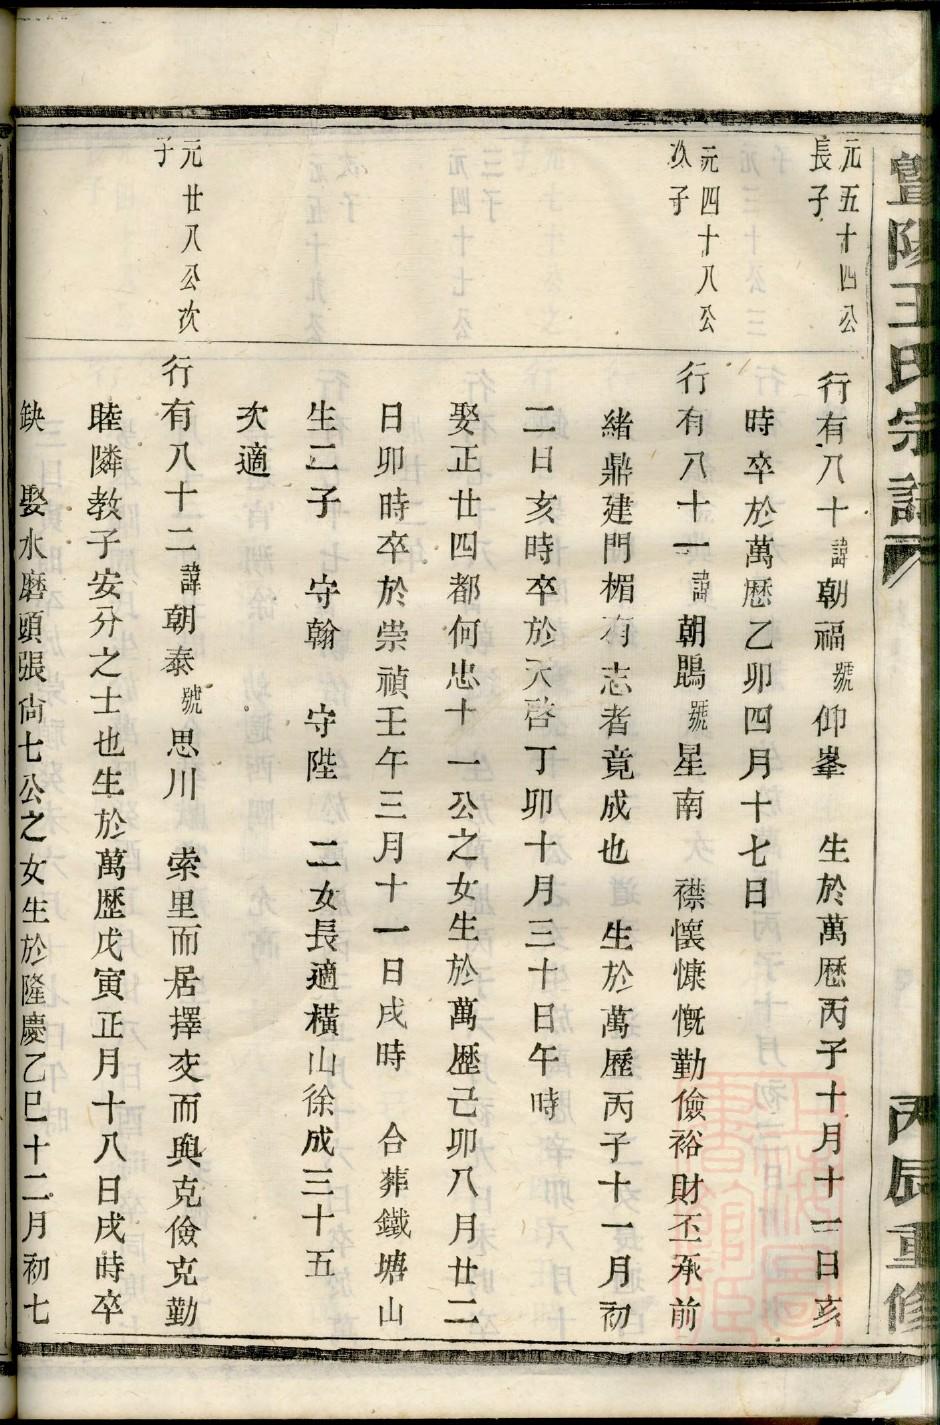 暨陽王氏宗譜
丙辰重修
元五十四公
長子
行有八十諱朝福號仰峯 生於萬曆丙子十月十一日亥
時卒於萬歷乙卯四月十七日
元四十八公
次子
行有八十一諱朝鵾號星南 襟懷慷慨勤儉裕財丕承前
緒鼎建門楣有志者竟成也 生於萬歷丙子十一月初
二日亥時卒於天啓丁卯十月三十日午時
娶正廿四都何忠十一公之女生於萬歷己卯八月廿二
日卯時卒於崇禎壬午三月十一日戌時 合葬鐵塘山
生二子 守翰 守陛 二女長適橫山徐成三十五
次適
元廿八公次
子
行有八十二諱朝泰號思川 索里而居擇交而與克儉克勤
睦隣教子安分之士也生於萬歷戊寅正月十八日戌時卒
缺 娶水磨頭張尙七公之女生於隆慶乙巳十二月初七